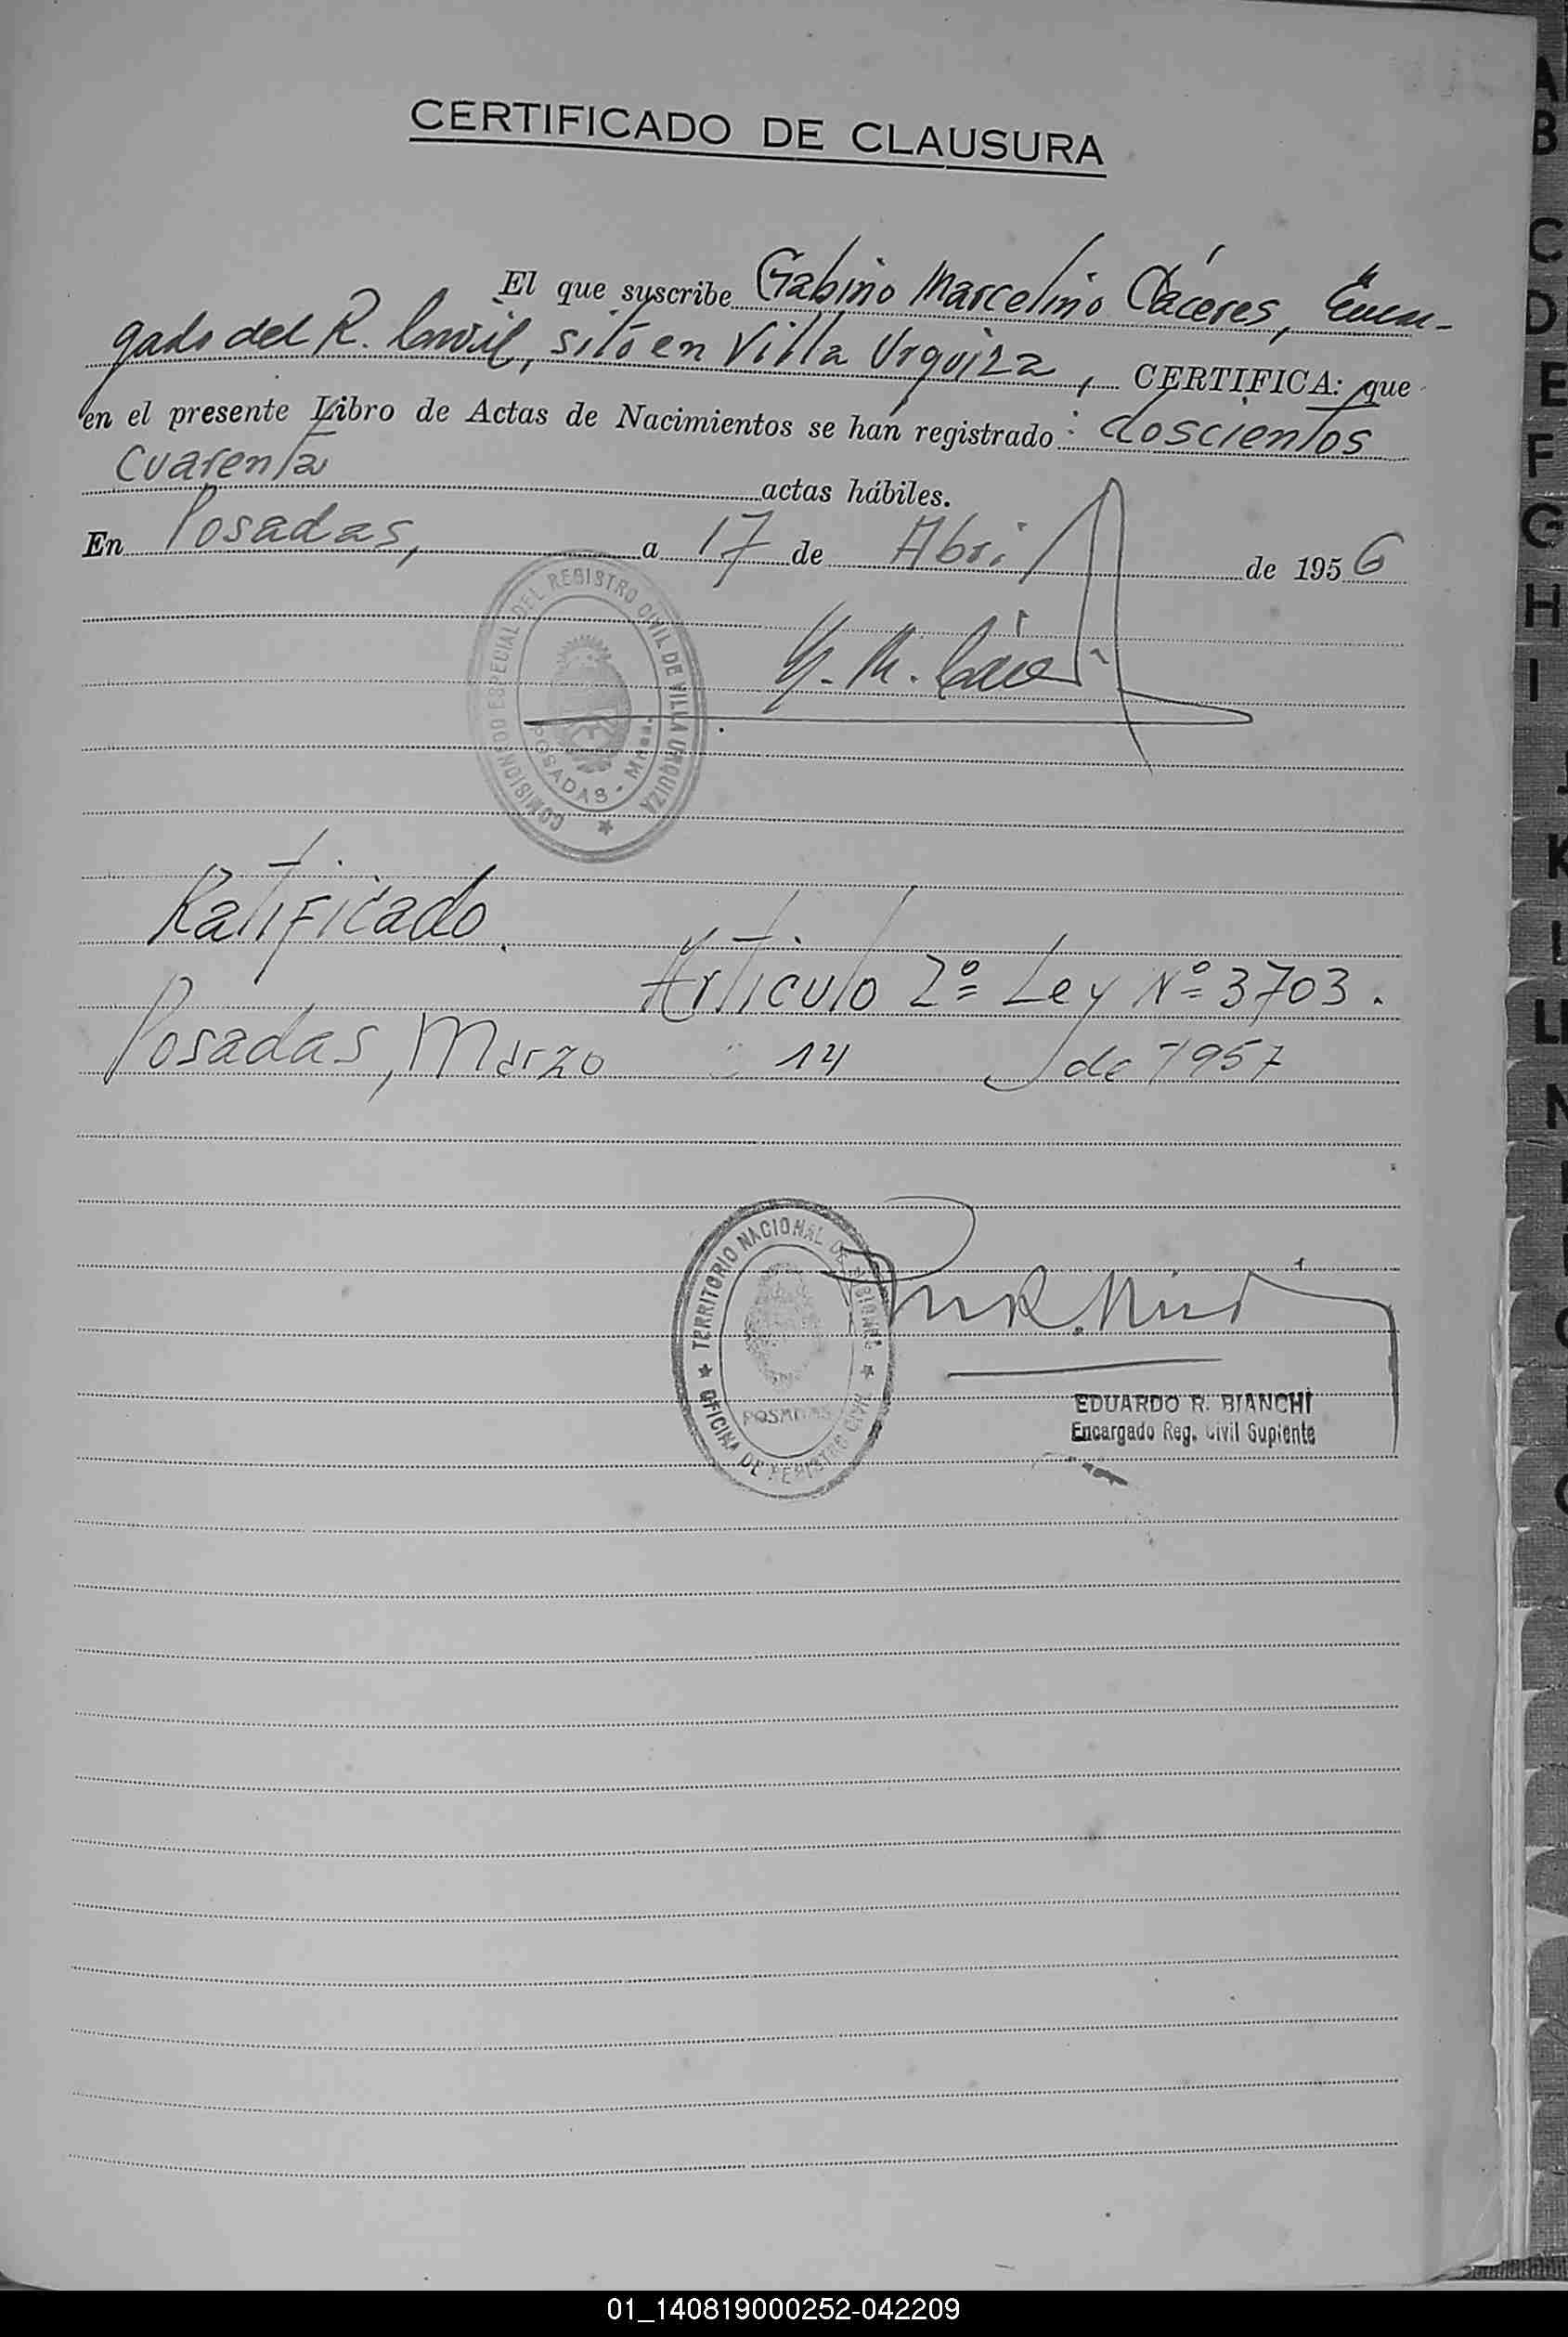 CERTIFICADO DE CLAUSURA
El que suscribe Gabino Marcelino Cáceres, Encar-
gado del R. Civil, sito en Villa Urquiza, CERTIFICA: que
en el presente Libro de Actas de Nacimientos se han registrado: doscientos
cuarenta actas hábiles.
En Posadas, a 17 de Abril de 1956
COMISIONADO ESPECIAL DEL REGISTRO CIVIL DE VILLA URQUIZA
POSADAS - Mnes.
G. M. Cáceres
Ratificado.
Artículo 2º Ley Nº 3703.
Posadas, Marzo 14 de 1957
TERRITORIO NACIONAL DE MISIONES
OFICINA DE REGISTRO CIVIL
POSADAS
EDUARDO R. BIANCHI
Encargado Reg. Civil Suplente
A
B
C
D
E
F
G
H
I
J
K
L
LL
N
01_140819000252-042209